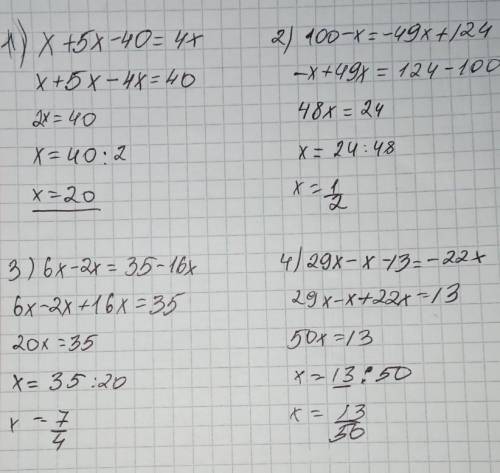 1) x+5x-40=4x
x+5x-4x=40
2x=40
x=40:2
x=20
2) 100-x=-49x+124
-x+49x=124-100
48x=24
x=24:48
x=1/2
3) 6x-2x=35-16x
6x-2x+16x=35
20x=35
x=35:20
x=7/4
4) 29x-x-13=-22x
29x-x+22x=13
50x=13
x=13:50
x=13/50